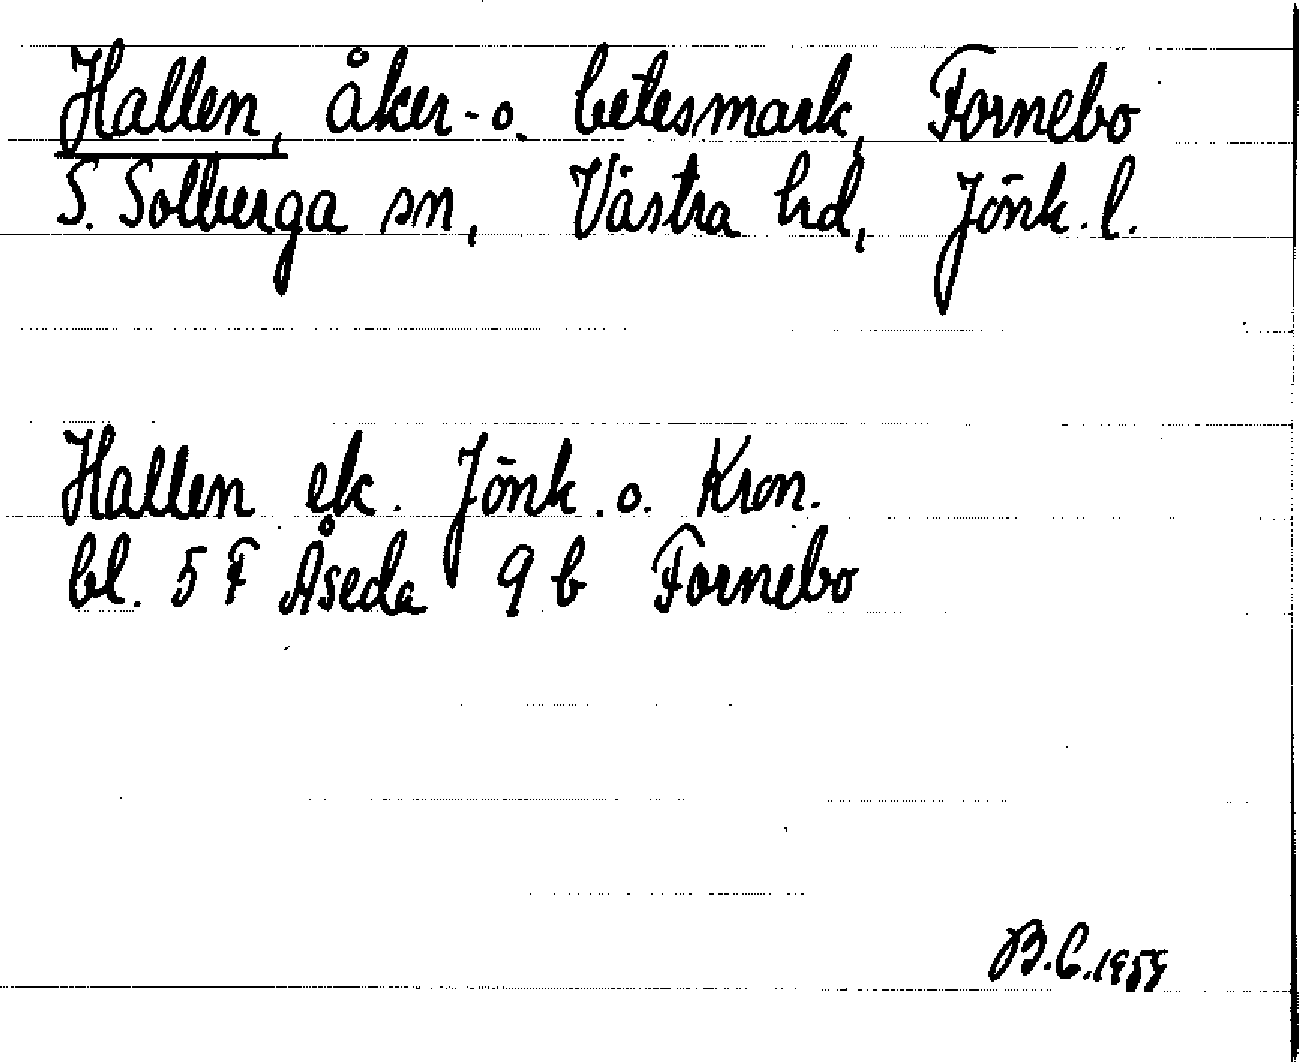 Hallen, åker- o. betesmark, Fornebo
S. Solberga sn, Västra hd, Jönk. l.
Hallen ek. Jönk. o. Kron.
bl. 5 F Åseda 9 b Fornebo
B.C. 1959